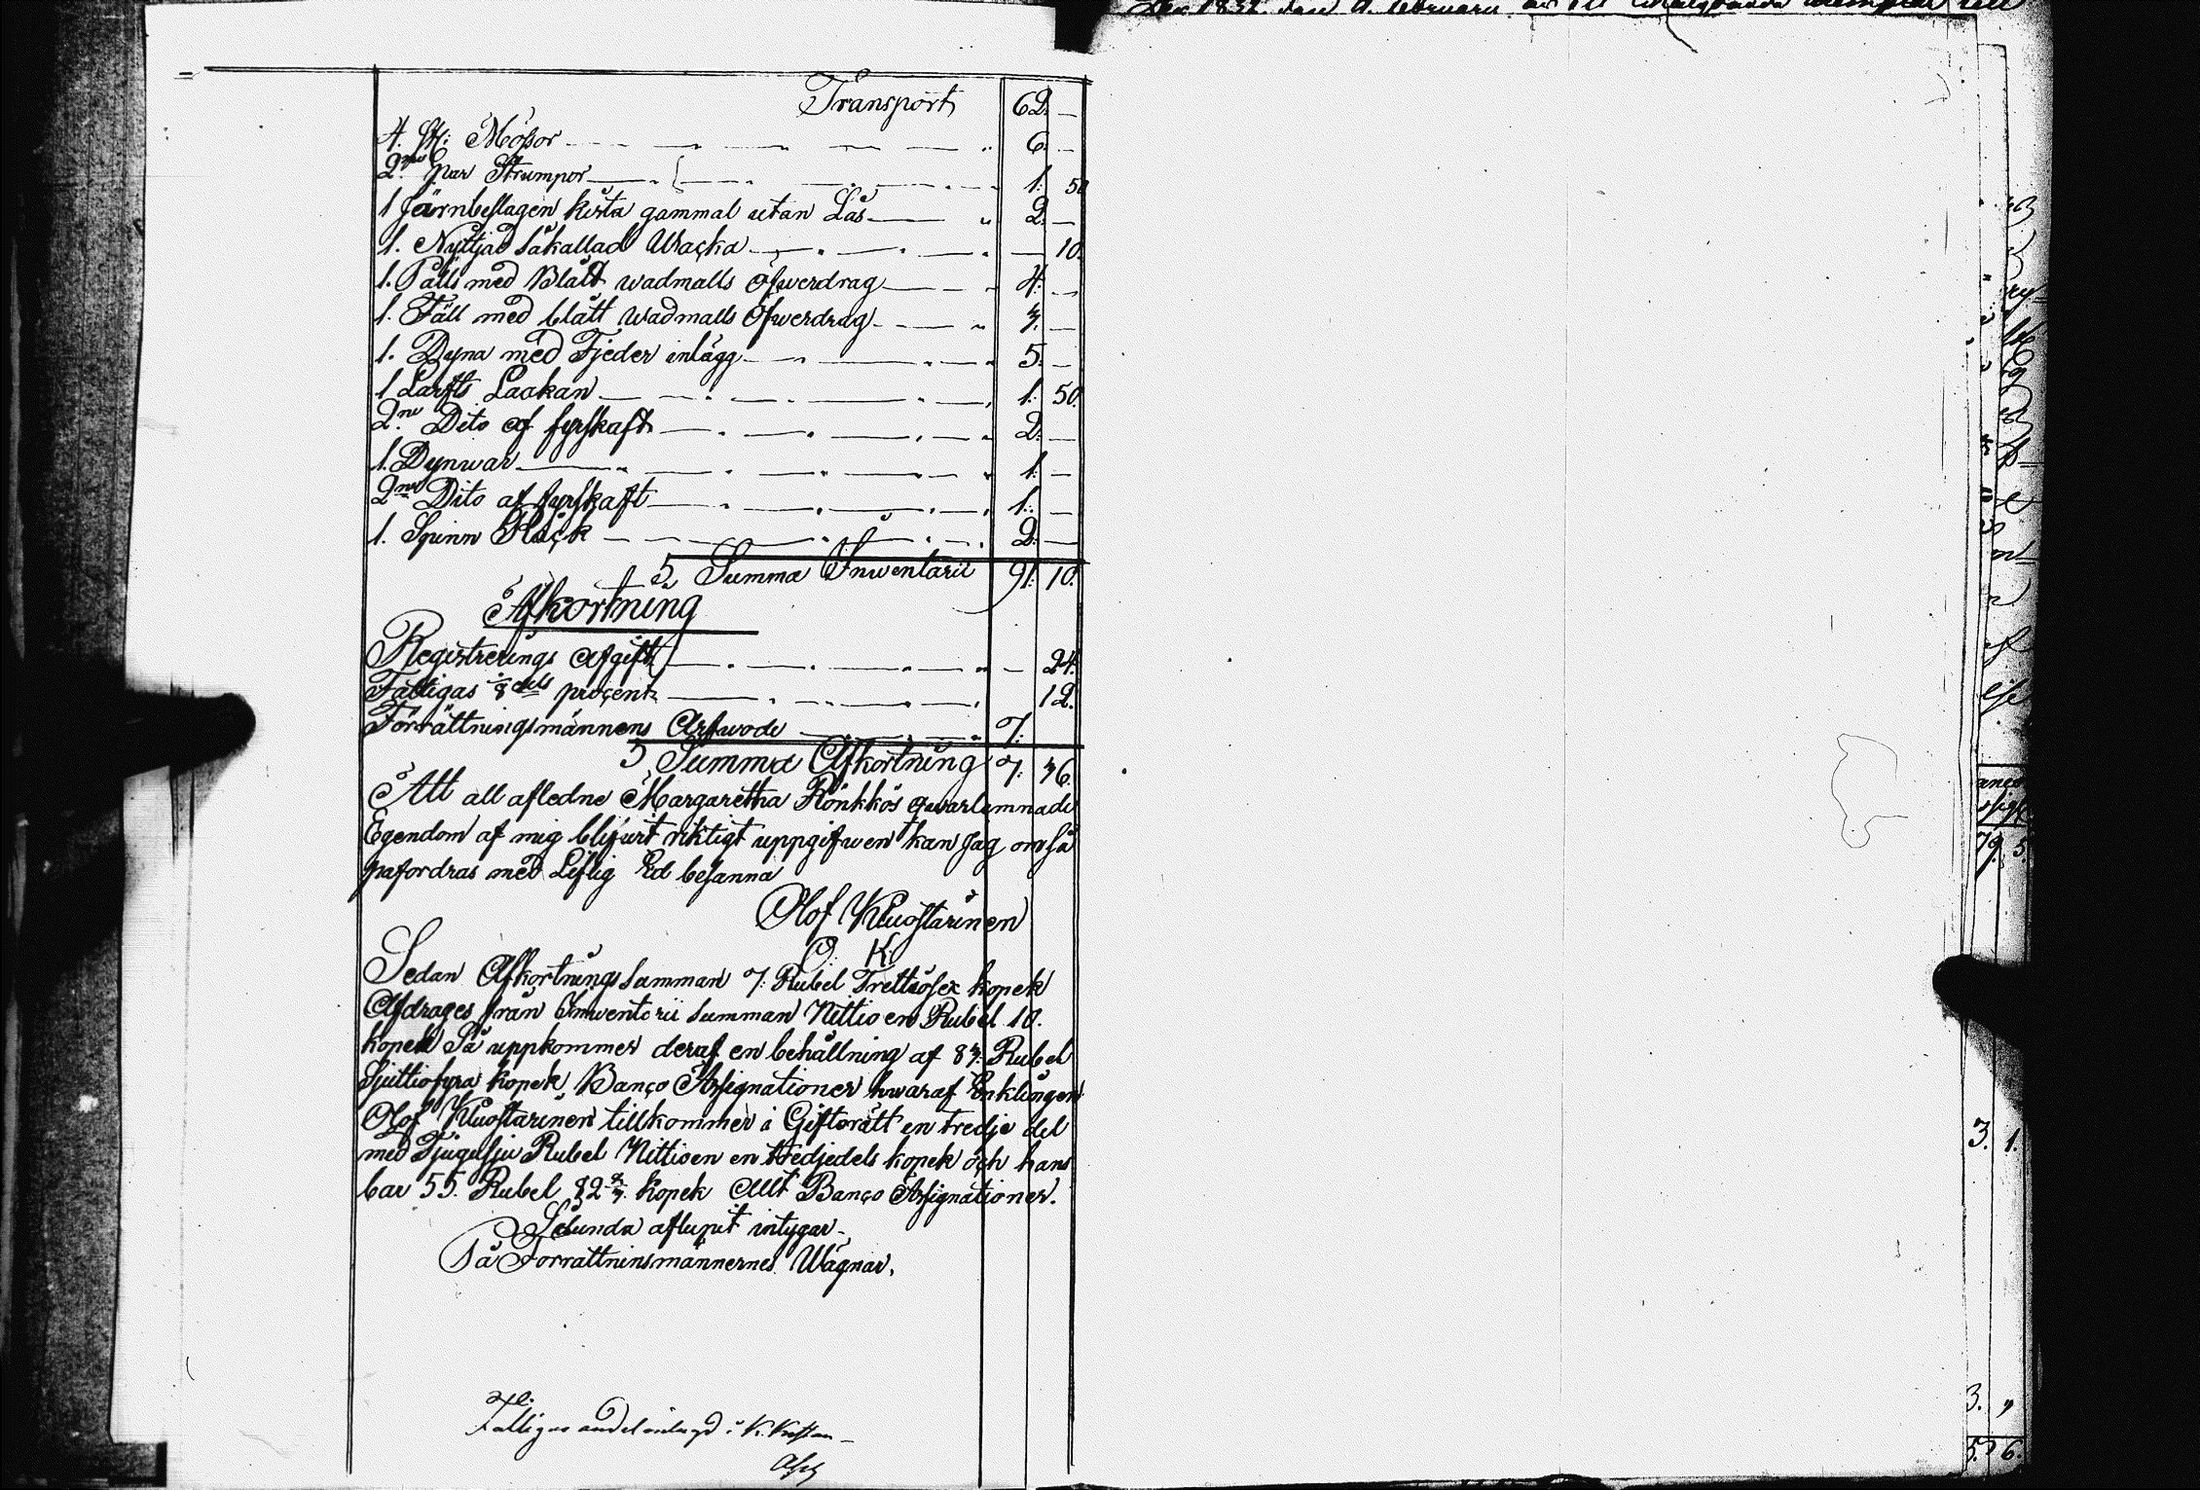 Transport 62. —
4. St: Mössor 6. —
2ne par Strumpor 1. 50
1 Järnbeslagen kista gammal utan Lås 2. —
1. Nyttjad såkallad Wacka — 10.
1. Pälls med Blått wadmalls öfwerdrag 4. —
1. Fäll med blått Wadmalls Öfwerdrag 3. —
1. Dyna med Fjeder inlägg 5. —
1 Larfts Laakan 1. 50.
2ne Dito af fyrskaft 2. —
1. Dynwar 1. —
2ne Dito af fyrskaft 1. —
1. Spinn Råck 2. —
Summa Inwentarii 91. 10.
Afkortning
Registrerings Afgift — 24.
Fattigas 1/8dels procent 12.
Förrättningsmännens Arfwode 7.
Summa Afkortning 7. 36.
Att all afledne Margaretha Rönkkös qwarlemnade
Egendom af mig blifwit riktigt uppgifwen kan Jag om så
påfordras med Liflig Ed besanna
Olof Kuostarinen
O. K.
Sedan Afkortnings Summan 7. Rubel Trettiosex kopek
Afdrages från Inwentarii Summan Nittio en Rubel 10.
kopek Så uppkommer deraf en behållning af 83. Rubel
Sjuttiofyra kopek Banco Assignationer hwaraf Enklingen
Olof Kuostarinen tillkommer i Giftorätt en tredje del
med Tjugusju Rubel Nittioen en tredjedels kopek och hans
bar 55. Rubel 82 2/3. kopek Allt Banco Assignationer.
Sålunda aflupit intygar
På Förrättninsmännernes Wägnar.
Fattigas andel inlagd i K. Kassan